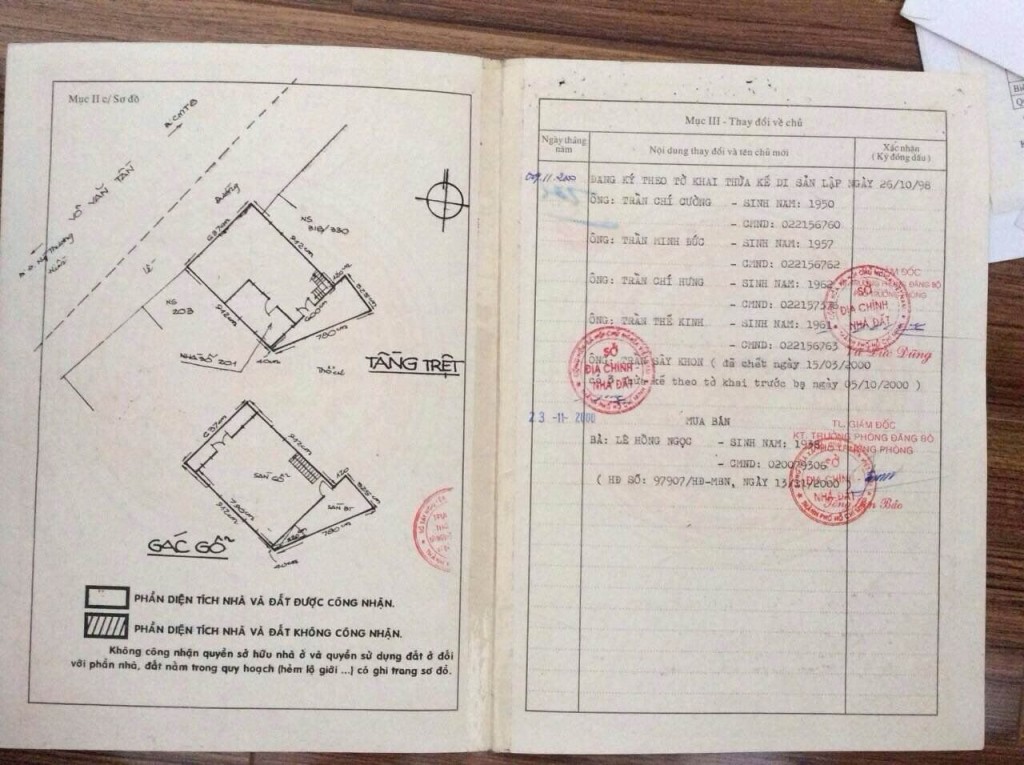 Mục II c/ Sơ đồ
VÕ VĂN TẦN
đường
lề
NS
318/330
NS
203
NHÀ SỐ 201
TẦNG TRỆT
SÀN GỖ
SÀN BT
GÁC GỖ
PHẦN DIỆN TÍCH NHÀ VÀ ĐẤT ĐƯỢC CÔNG NHẬN.
PHẦN DIỆN TÍCH NHÀ VÀ ĐẤT KHÔNG CÔNG NHẬN.
Không công nhận quyền sở hữu nhà ở và quyền sử dụng đất ở đối
với phần nhà, đất nằm trong quy hoạch (hẻm lộ giới ...) có ghi trong sơ đồ.
Mục III - Thay đổi về chủ
Ngày tháng năm
Nội dung thay đổi và tên chủ mới
Xác nhận
( Ký đóng dấu )
ĐĂNG KÝ THEO TỜ KHAI THỪA KẾ DI SẢN LẬP NGÀY 26/10/98
ÔNG: TRẦN CHÍ CƯỜNG - SINH NĂM: 1950
- CMND: 022156760
ÔNG: TRẦN MINH ĐỨC - SINH NĂM: 1957
- CMND: 022156762
ÔNG: TRẦN CHÍ HƯNG - SINH NĂM: 1962
- CMND:
ÔNG: TRẦN THẾ KINH - SINH NĂM: 1961
- CMND: 022156763
( đã chết ngày 15/03/2000
kế theo tờ khai trước bạ ngày 05/10/2000 )
SỞ
ĐỊA CHÍNH
NHÀ ĐẤT
SỞ
ĐỊA CHÍNH
NHÀ ĐẤT
23 -11- 2000
MUA BÁN
BÀ: LÊ HỒNG NGỌC - SINH NĂM: 1938
- CMND: 020079306
( HĐ SỐ: 97907/HĐ-MBN, NGÀY 13/11/2000 )
TL. GIÁM ĐỐC
KT. TRƯỞNG PHÒNG ĐĂNG BỘ
PHÓ TRƯỞNG PHÒNG
SỞ
ĐỊA CHÍNH
NHÀ ĐẤT